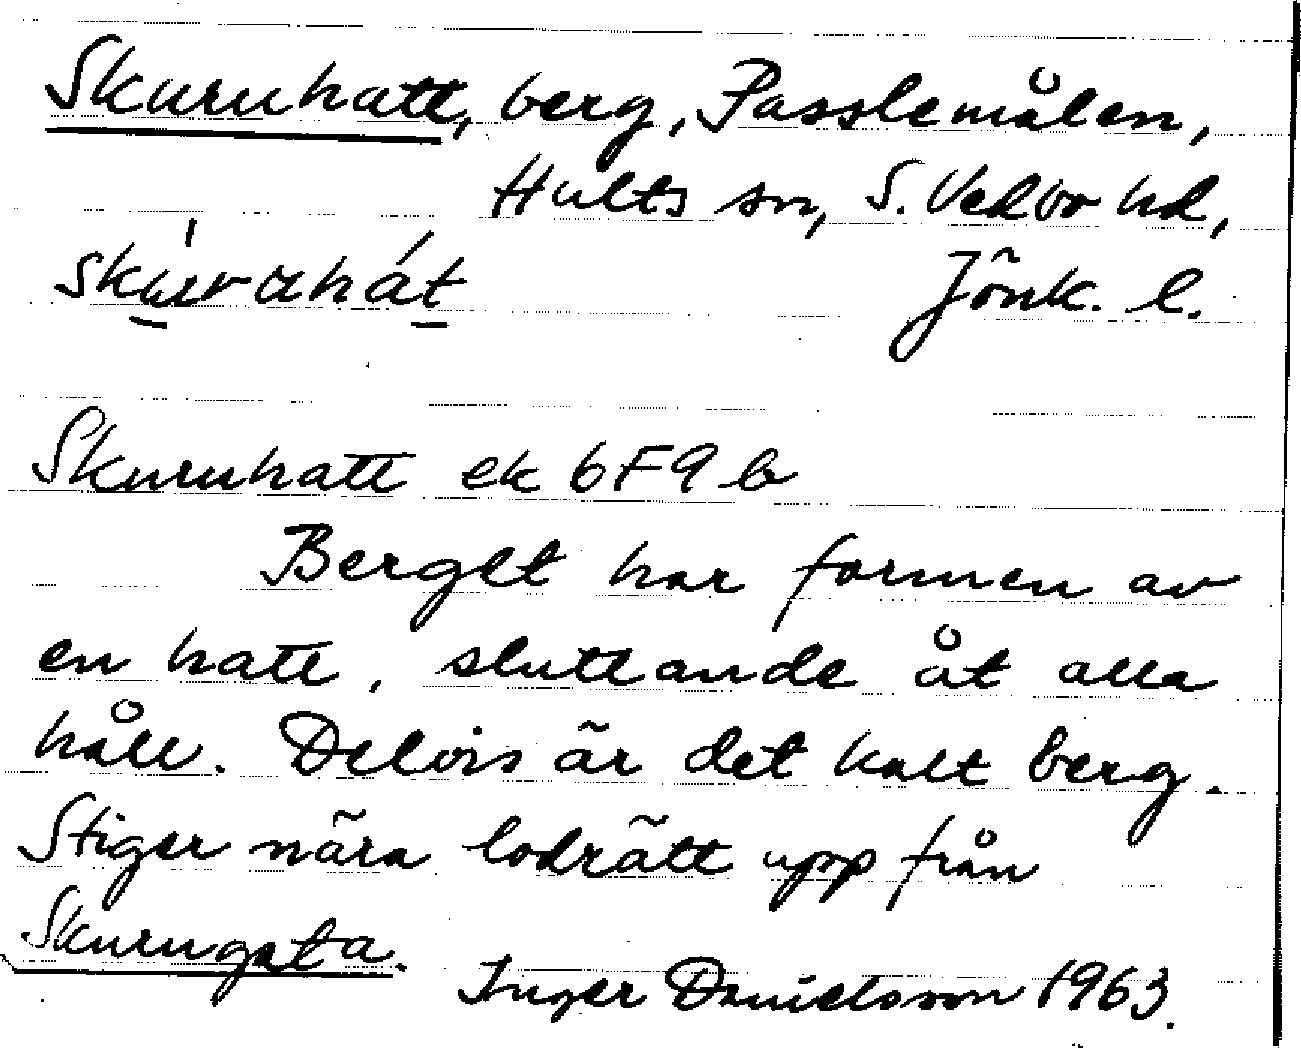 Skuruhatt, berg, Passlemålen,
Hults sn, S. Vedbo hd,
skúrαhát Jönk. l.
Skuruhatt ek 6F9b
Berget har formen av
en hatt, sluttande åt alla
håll. Delvis är det kalt berg.
Stiger nära lodrätt upp från
Skurugata.
Inger Danielsson 1963.